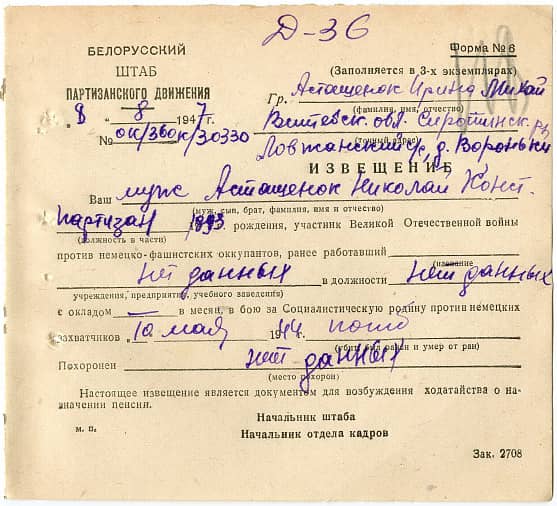 Д-36
БЕЛОРУССКИЙ
ШТАБ
ПАРТИЗАНСКОГО ДВИЖЕНИЯ
„8" 8 1947г
№ ок/360к/30330
Форма № 6
(Заполняется в 3-х экземплярах)
Гр. Асташенок Ирина Михай
(фамилия, имя, отчество)
Витебск. обл. Сиротинск. р-н,
(точный адрес)
Ловжанский с, д. Вороньки
ИЗВЕЩЕНИЕ
Ваш муж Асташенок Николай Конст.
(муж, сын, брат, фамилия, имя и отчество)
партизан 1893. рождения, участник Великой Отечественной войны
(должность в части)
против немецко-фашистских оккупантов, ранее работавший
(название
нет данных в должности нет данных
учреждения, предприятия, учебного заведения)
с окладом — в месяц, в бою за Социалистическую родину против немецких
захватчиков 10 мая 1944 погиб
(убит, был ранен и умер от ран)
Похоронен нет данных
(место похорон)
Настоящее извещение является документом для возбуждения ходатайства о на-
значении пенсии.
Начальник штаба
м. п. Начальник отдела кадров
Зак. 2708